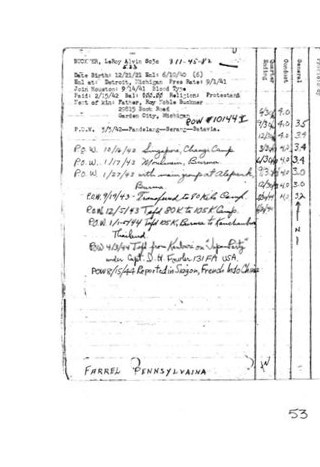 BUCKNER, LeRoy Alvin Sc3c 311-45-82
Date Birth: 12/21/21 Enl: 6/10/40 (6)
Enl at: Detroit, Michigan Reports: 9/1/41
Join Houston: 9/14/41 Blood Type
Paid: 2/15/42 Bal: Religion: Protestant
Next of kin: Father, Roy Noble Buckner
20815 Rock Road
Garden City, Michigan
POW #10144 I
P.O.W. 3/3/42-Pandelang-Serang-Batavia.
P.O.W. 10/16/42 Singapore, Changi Camp
P.O.W. 1/17/43 Moulmein, Burma
P.O.W. 1/27/43 with main group at
Burma
POW 9/19/43 - Transferred to 80 Kilo Camp.
POW 12/5/43 Tsfd 80K to 105K Camp.
POW 1/ /44 Tsfd 105K, Burma to Kanchanburi
Thailand
POW 4/3/44 Tsfd from Kanburi on "Japan Party"
under Capt. D. H. Fowler 131 FA USA.
POW 8/15/44 Reported in Saigon, French Indo China
FARREL PENNSYLVAINA
Quarter Ending
Conduct
General
4.0
4.0 3.5
3.4
4.0 3.4
4.0 3.4
4.0 3.0
4.0 3.0
3.2
53